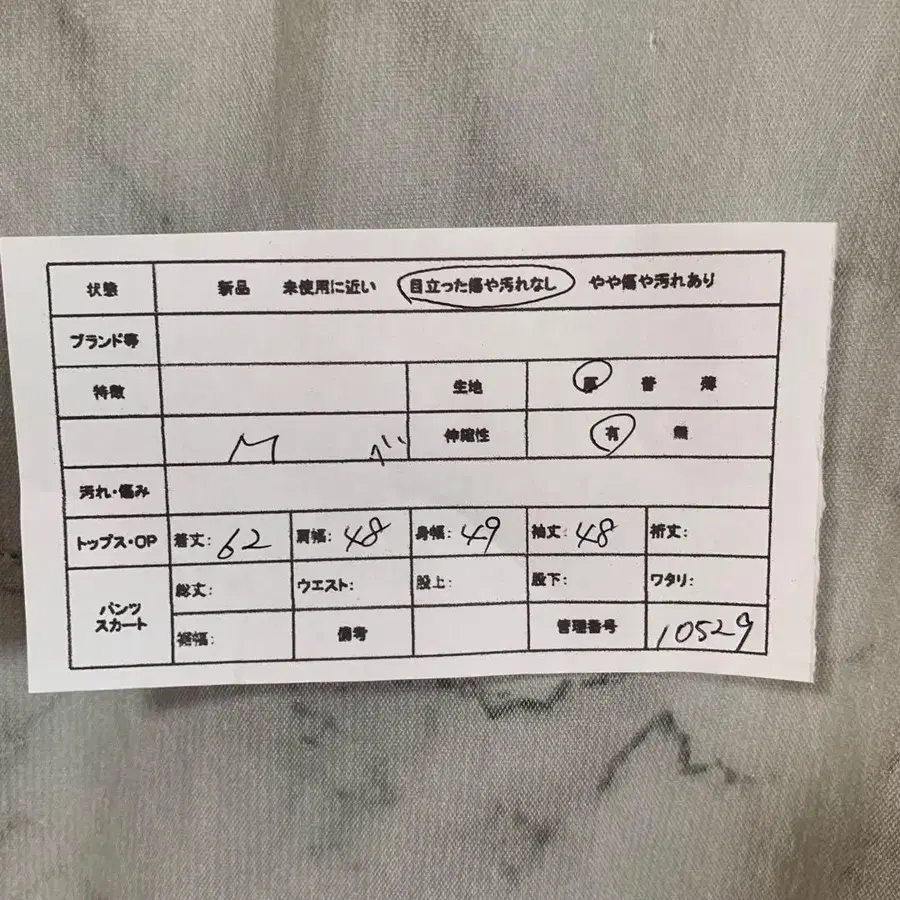 状態 新品 未使用に近い 目立った傷や汚れなし やや傷や汚れあり
ブランド等
特徴 生地 厚 普 薄
M 伸縮性 有 無
汚れ・傷み
トップス・OP 着丈: 62 肩幅: 48 身幅: 49 袖丈: 48 裄丈:
パンツ スカート 総丈: ウエスト: 股上: 股下: ワタリ:
裾幅: 備考 管理番号 10529